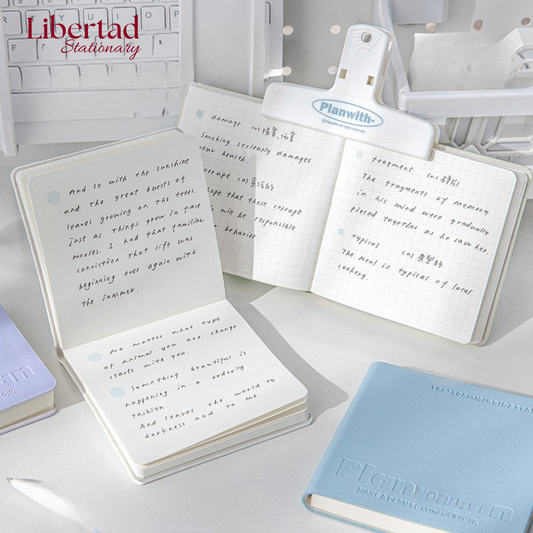 Libertad
Stationary
And so with the sunshine
and the great bursts of
leaves growing on the trees.
just as things grow in fast
movies. I had that familiar
conviction that life was
beginning over again with
the summer.
No matter what type
of animal you are. change
starts with you.
Something beautiful is
happening in a orderly
fashion.
And leaves the world to
darkness and to me.
damage
Smoking seriously damages
your health.
corrupt
hope that those corrupt
will be responsible
behavior
Planwith
fragment
The fragments of memory
in his mind were gradually
pieced together as he saw her.
typical
The meal is typical of local
cookery.
Plan
MAKE A PLAN